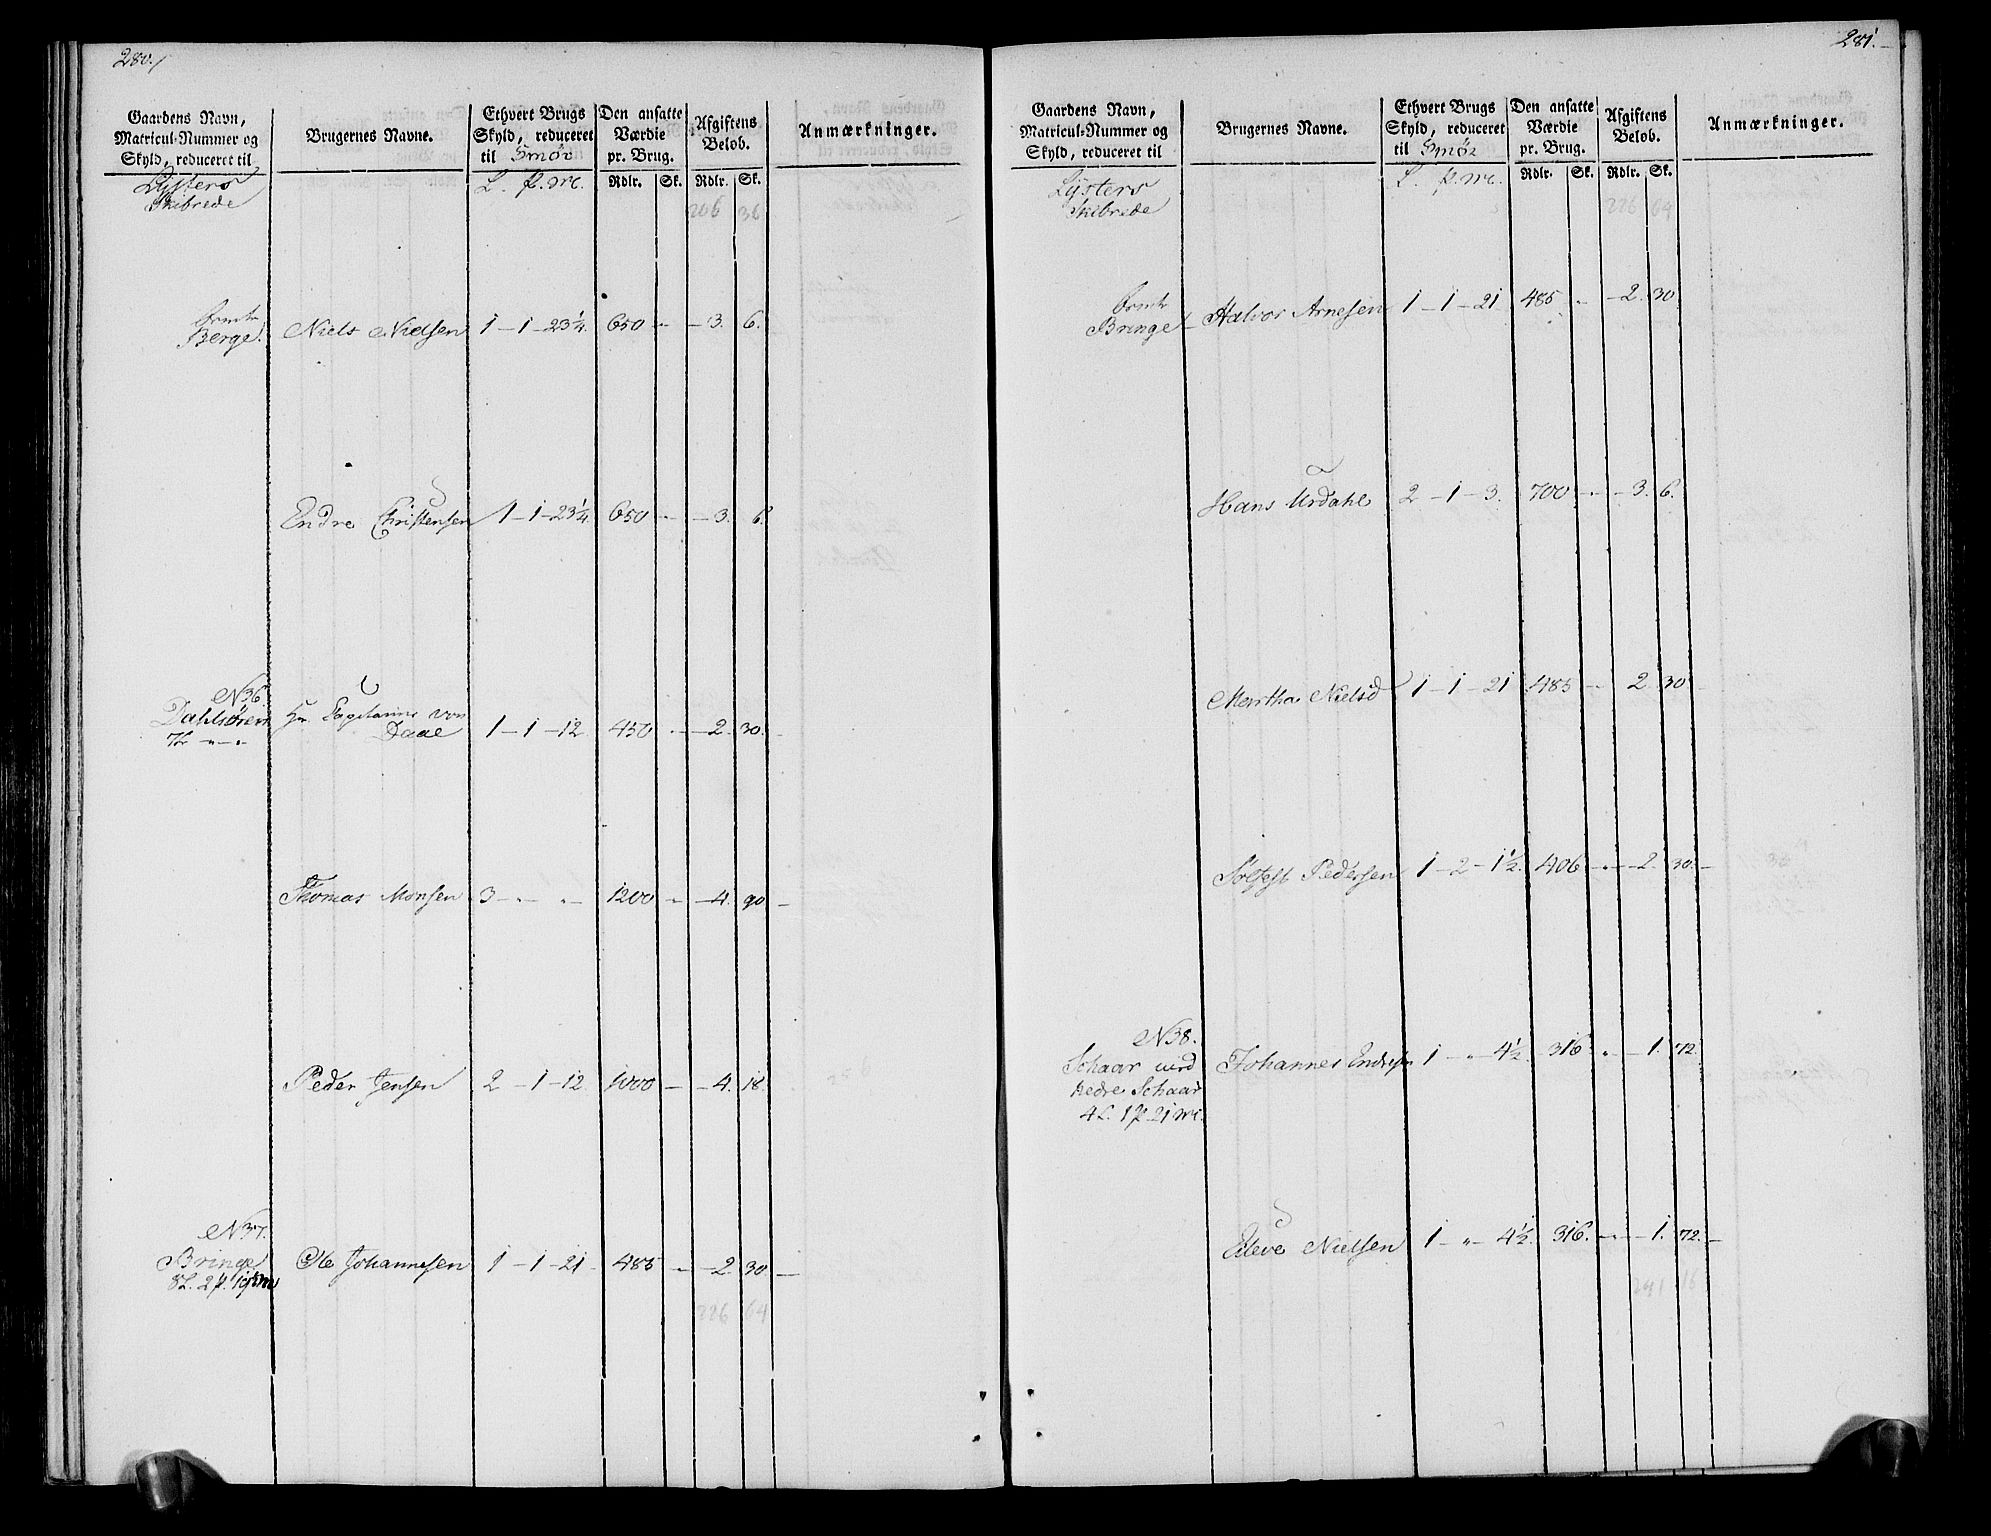 280.
Gaardens Navn, Matricul-Nummer og Skyld, reduceret til | Brugernes Navne. | Ethvert Brugs Skyld, reduceret til Smör | Den ansatte Værdie pr. Brug. | Afgiftens Belob. | Anmærkninger.
Lysters Skibrede | L. P. M. | Rdlr. Sk. | Rdlr. Sk.
206 36
Berge. Niels Nielsen 1 - 1 - 23¼. 650 - - 3. 6.
Endre Christensen 1 - 1 - 23¼ 650 - - 3. 6.
N 36.
Dahlsören Hr. Capitaine von
7L " - " Daae 1 - 1 - 12 450 - - 2. 30.
Thomas Monsen 3 - " - " - 1200 - - 4. 90 -
Peder Jensen 2 - 1 - 12 1000 - - 4. 18.
N 37.
Bringe Ole Johannesen 1 - 1 - 21 - 485 - - 2. 30. -
8L. 2P.
226 64
281.
Gaardens Navn, Matricul-Nummer og Skyld, reduceret til | Brugernes Navne. | Ethvert Brugs Skyld, reduceret til Smör | Den ansatte Værdie pr. Brug. | Afgiftens Belob. | Anmærkninger.
Lysters Skibrede | L. P. M. | Rdlr. Sk. | Rdlr. Sk.
226 64
Bringe Halvor Arnesen 1 - 1 - 21 485 - - 2. 30.
Hans Urdahl 2 - 1 - 3. 700 - - 3. 6.
Merrtha Nielsd 1 - 1 - 21 485 - - 2. 30 -
Pedersen 1 - 2 - 1½. 406 - - 2. 30. -
N 38.
Schaar med Johannes Endresen 1 - " - 4½. 316 - - 1. 72.
nedre Schaar
4L. 1P 21 M.
Eleve Nielsen 1 - " - 4½. 316. - - 1. 72. -
241 16